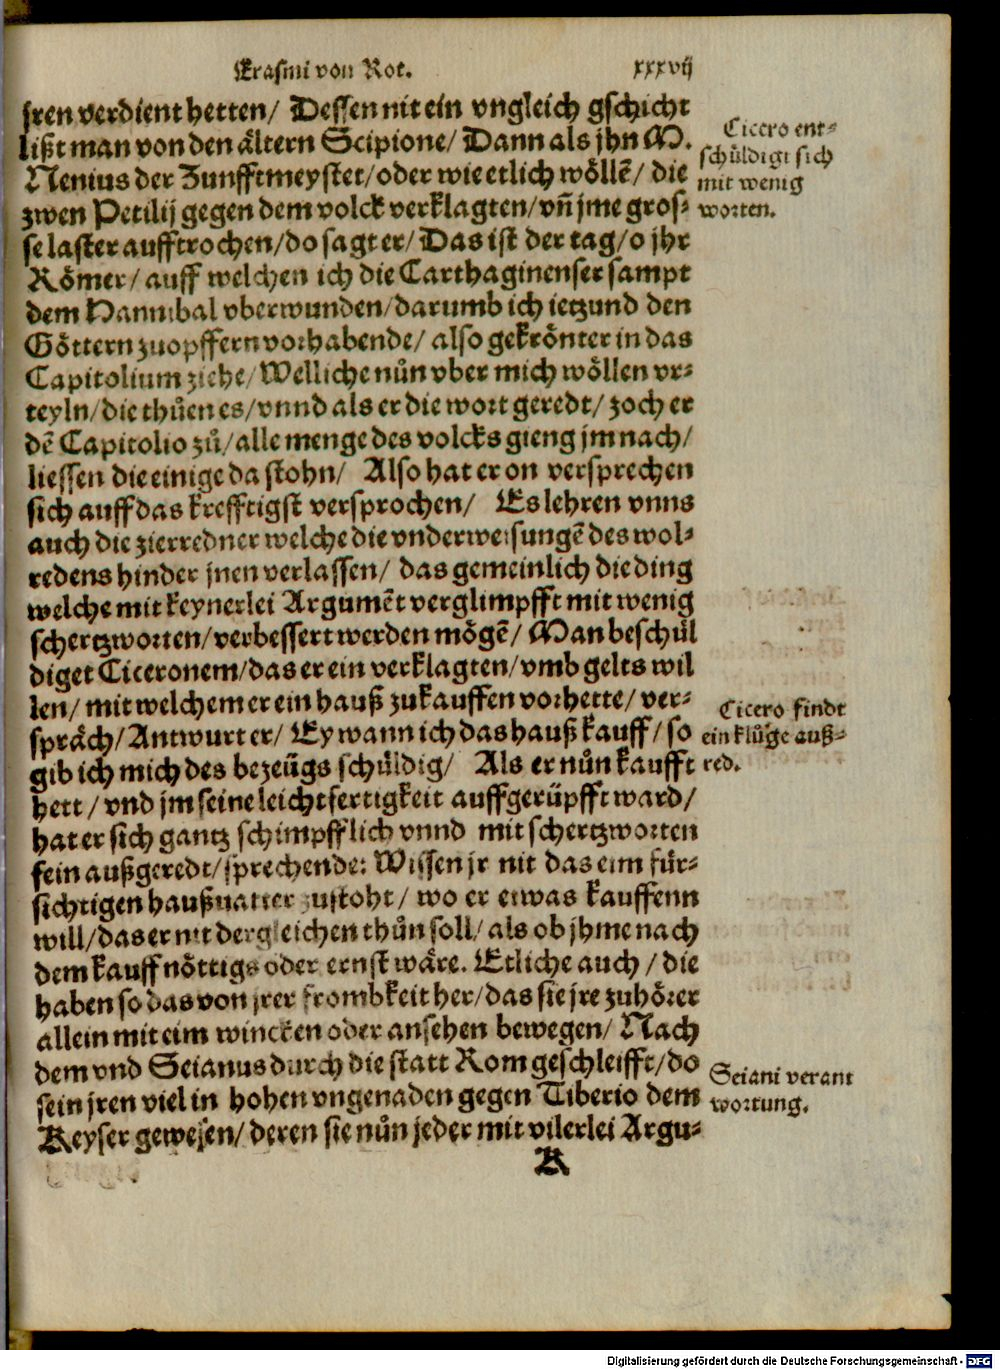 Erasmi von Rot. xxxvij
jren verdient hetten/ Dessen nit ein vngleich gschicht
lißt man von den ältern Scipione/ Dann als jhn M.
Nenius der Zunfftmeyster/ oder wie etlich wöllē/ die
zwen Petilij gegen dem volck verklagten/ vñ jme gros-
se laster aufftrochen/ do sagt er/ Das ist der tag/ o jhr
Römer/ auff welchen ich die Carthaginenser sampt
dem Hannibal vberwunden/ darumb ich ietzund den
Göttern zuopffern vorhabende/ also gekrönter in das
Capitolium ziehe/ Welliche nůn vber mich wöllen vr-
teyln/ die thůen es/ vnnd als er die wort geredt/ zoch er
dē Capitolio zů/ alle menge des volcks gieng jm nach/
liessen die einige da stohn/ Also hat er on versprechen
sich auff das krefftigst versprochen/ Es lehren vnns
auch die zierredner welche die vnderweisungē des wol-
redens hinder jnen verlassen/ das gemeinlich die ding
welche mit keynerlei Argumēt verglimpfft mit wenig
schertzworten/ verbessert werden mögē/ Man beschůl
diget Ciceronem/ das er ein verklagten/ vmb gelts wil
len/ mit welchem er ein hauß zukauffen vorhette/ ver-
spräch/ Antwurt er/ Ey wann ich das hauß kauff/ so
gib ich mich des bezeügs schüldig/ Als er nůn kaufft
hett/ vnd jm seine leichtfertigkeit auffgerüpfft ward/
hat er sich gantz schimpfflich vnnd mit schertzworten
fein außgeredt/ sprechende: Wissen jr nit das eim für-
sichtigen haußuatter zustoht/ wo er etwas kauffenn
will/ das er nit dergleichen thůn soll/ als ob jhme nach
dem kauff nöttigs oder ernst wäre. Etliche auch/ die
haben so das von jrer frombkeit her/ das sie jre zuhörer
allein mit eim wincken oder ansehen bewegen/ Nach
dem vnd Seianus durch die statt Rom geschleifft/ do
sein jren viel in hohen vngenaden gegen Tiberio dem
Keyser gewesen/ deren sie nůn jeder mit vilerlei Argu-
K
Cicero ent-
schüldigt sich
mit wenig
worten.
Cicero findt
ein klůge auß-
red.
Seiani verant
wortung.
Digitalisierung gefördert durch die Deutsche Forschungsgemeinschaft - DFG